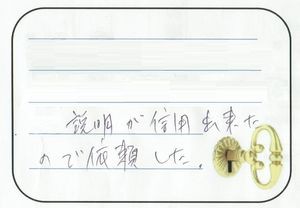 説明が信用出来た
ので依頼した。